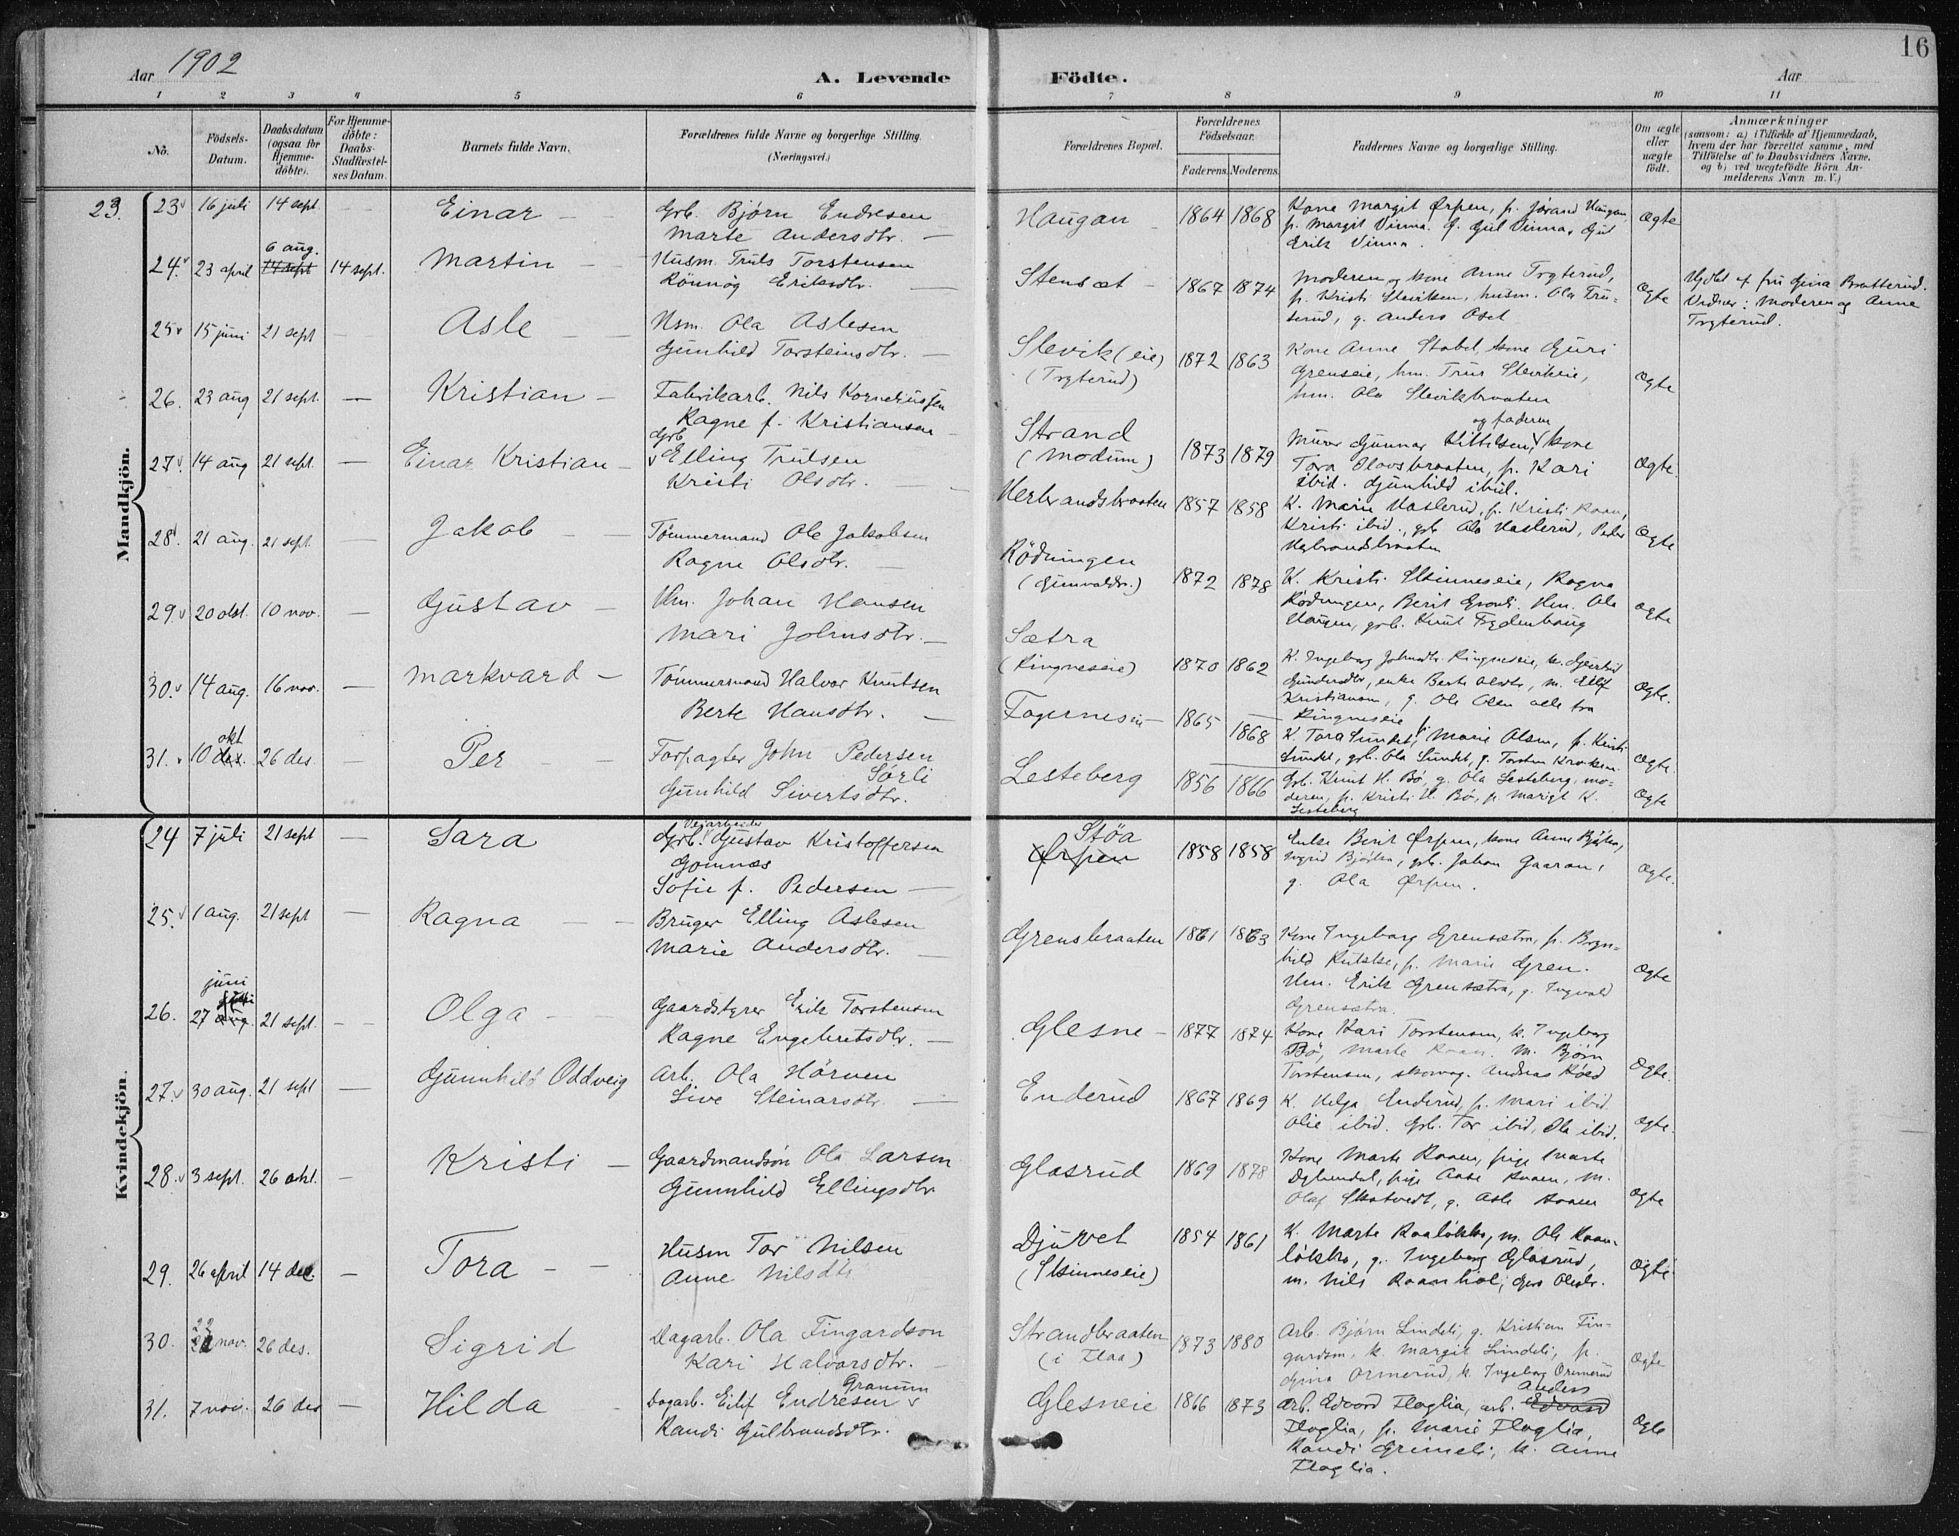 Aar 1902
A. Levende
Födte.
Aar
16
1 2 3 4 5 6 7 8 9 10 11
No.
Födsels-Datum.
Daabsdatum (ogsaa for Hjemme-döbte).
For Hjemme-döbte: Daabs-Stadfæstel-ses Datum.
Barnets fulde Navn.
Forældrenes fulde Navne og borgerlige Stilling.
(Næringsvei.)
Forældrenes Bopæl.
Forældrenes Födselsaar.
Faderens. Moderens.
Faddernes Navne og borgerlige Stilling.
Om ægte eller uægte födt.
Anmærkninger
(saasom: a) i Tilfælde af Hjemmedaab,
hvem der har forrettet samme, med
Tilföielse af to Daabsvidners Navne,
og b) ved uægtefödte Börn An-
melderens Navn m. V.)
Mandkjön.
23. 23 16 juli 14 sept. — Einar — Grb. Bjørn Endresen
Marte Andersdtr. — Haugan 1864 1868 Kone Margit Ørpen, p. Jørand Haugan,
p. Margit Vinna. G. Gul Vinna, Gul
Erik Vinna. Ægte
24. 23 april 6 aug. 14 sept 14 sept. Martin — Husm. Truls Torstensen
Rönnög Eriksdtr. — Stensæt 1867 1874 Moderen og kone Anne Trgterud,
p. Kristi Slevikeie, husm. Ola Tru-
serud, g. Anders Oset Ægte Hjdbt af fru Gina Bratterud.
Vidner: Moderen og Anne
Trgterud.
25 15 juni 21 sept — Asle — Hsm. Ola Aslesen
Gunhild Torsteinsdtr. — Slevik (eie)
(Trgterud) 1872 1863 Kone Anne Stabel, kone Guri
Grenseie, hm. Trur Slevikeie,
hm. Ola Slevikbraaten Ægte
26. 23 aug 21 sept. — Kristian — Fabrikarb. Nils Korneliussen
Ragne f. Kristiansen Strand
(Modum) 1873 1879 Murer Gunnar Kittelsen, og faderen kone
Tora Olavsbraaten, p. Kari
ibid. Gunhild ibid. Ægte
27. 14 aug 21 sept. — Einar Kristian — Grb. Elling Trulsen
Kristi Olsdtr. — Herbrandsbraaten 1857 1858 K. Marie Haslerud, p. Kristi Raan,
Kristi ibid., grb. Ola Haslerud, Peder
Herbrandsbraaten Ægte
28. 21 aug. 21 sept. — Jakob — Tømmermand Ole Jakobsen
Ragne Olsdtr. — Rödningen
(Gunvaldsr.) 1872 1878 K. Kristi Skinneseie, Ragna
Rödningen, Berit Hm. Ola
Haugen, grb. Knut Frydenhaug Ægte
29. 20 okt. 10 nov. — Gustav — Hm. Johan Hansen
Mari Johnsdtr. — Sætra
(Ringneseie) 1870 1862 K. Ingeborg Johnsdtr. Ringneseie, k. Gjertrud
Gundersdtr, enke Berte Olsdtr, m. Ellif
Kristiansen, g. Ole Olsen alle fra
Ringneseie Ægte.
30. 14 aug. 16 nov. — Markvard — Tømmermand Halvor Knutsen
Berte Hansdtr. — Fagerneseie — 1865 1868 K. Tora Sundet, Marie Olsen, p. Kristi
Sundet, grb. Ola Sundet, g. Torsten Kroken Ægte.
31. 10 okt dex. 26 des — Per — Forpagter John Pedersen
Sørli
Gunhild Sivertsdtr. Lesteberg 1856 1866 Grb. Knut H. Bø, g. Ola Lesteberg, mo-
deren, p. Kristi H. Bø, p. Marigt K.
Lesteberg Ægte
Kvindekjön.
24 7 juli 21 sept — Sara Grb. Veiarbeider Gustav Kristoffersen
Gomnæs
Sofie f. Pedersen — Støa
Ørpen 1858 1858 Enke Berit Ørpen, kone Anne Björe,
Sigrid Björe, grb. Johan Gaaran,
g. Ola Ørpen. Ægte.
25. 1 aug. 21 sept — Ragna — Bruger Elling Aslesen
Marie Andersdtr. — Grensbraaten 1861 1863 Kone Ingeborg Grensætra, p. Bryn-
hild Rutske, p. Marie Gren.
Hm. Erik Grensætra, g. Ingvald
Grensætra. Ægte
26. 27 juni aug. 21 sept. — Olga — Gaardstyrer Erik Torstensen
Ragne Engebretsdtr. — Glesne — 1877 1874 Kone Kari Torstensen, k. Ingeborg
Bö, Marte Raaen. m. Bjørn
Torstensen, skovvog. Andreas Röed Ægte.
27. 30 aug. 21 sept — Gunnhild Oddveig Arb. Ola Hörven
Live Steinarsdtr. — Enderud 1867 1869 K. Helga Enderud, p. Mari ibid
Olie ibid. Grb. Tor ibid, Ola ibid. Ægte.
28. 3 sept. 26 okt. — Kristi — Gaardmandsön Ola Larsen
Gunnhild Ellingsdtr Glasrud 1869 1878 Kone Marte Raaen, pige Marte
pige Aase Raaen, m.
Olaf Skatvedt, g. Asle Raaen Ægte
29. 26 april 14 dec. — Tora — Husm Tor Nilsen
Anne Nilsdtr Djuvet
(Skinneseie) 1854 1861 K. Marte Raaløkka, m. Ole Raan-
løkka, g. Ingeborg Glasrud,
m. Nils Raanhol, Gro Olsdtr. Ægte
30. 22 nov. 26 des. Sigrid Dagarb. Ola Fingardson
Kari Halvorsdtr. — Strandbraaten
(i Flaa) 1873 1880 Arb. Bjørn Lindeli, g. Kristian Fin-
gardson, k. Margit Lindeli, p.
Gina Ormerud, k. Ingeborg Ormerud Ægte
31. 7 nov. 26 des — Hilda — Dagarb. Eilif Endresen Granum
Randi Gulbrandsdtr. Glesneie 1866 1873 Arb. Edvard Flaglia, arb. Anders Edvard
Flaglia, p. Marie Flaglia,
Randi Grimeli, k. Anne
Flaglia. Ægte